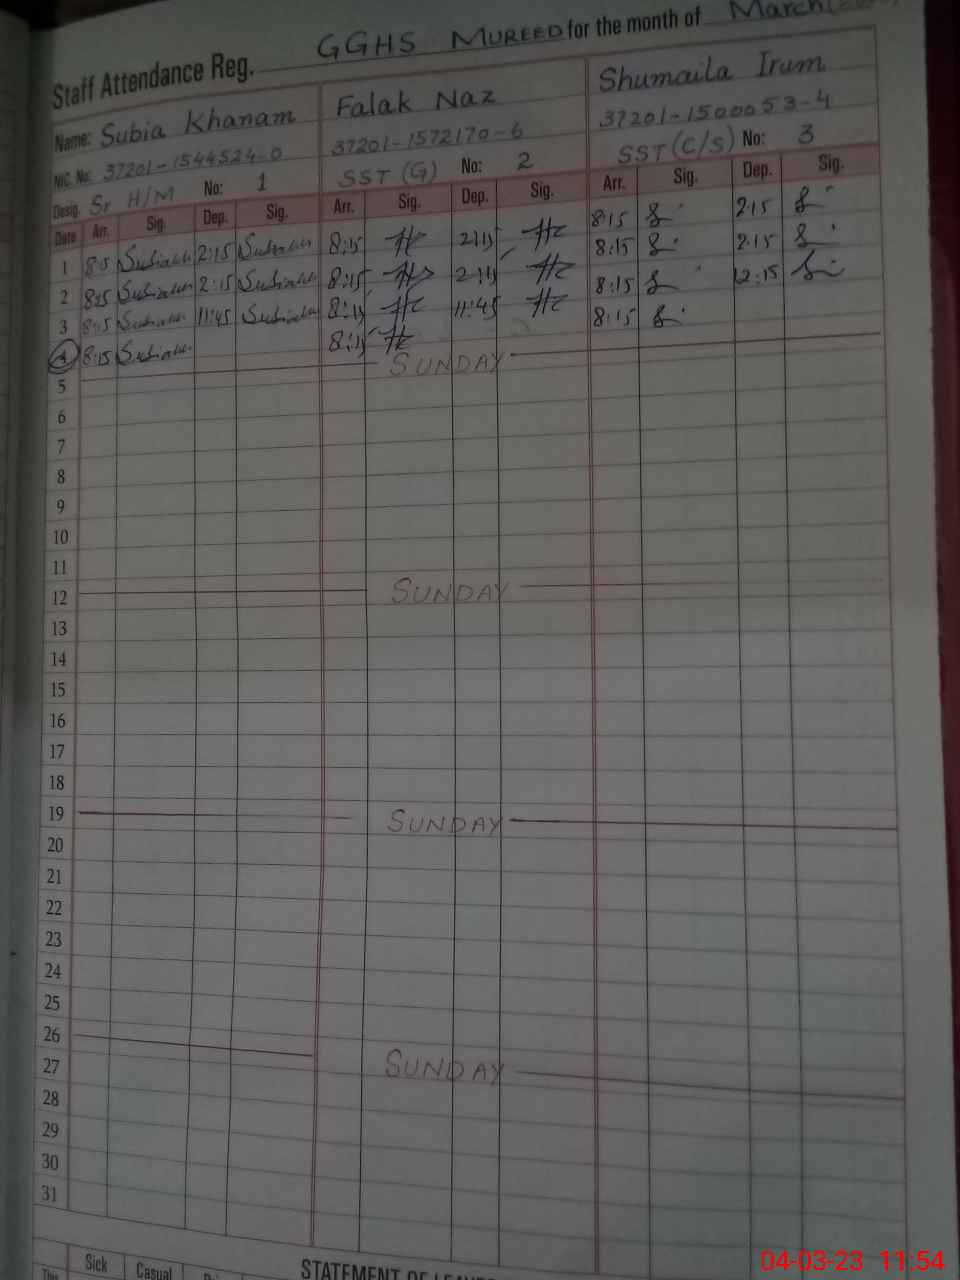 Staff Attendance Reg. GGHS MUREED for the month of March
Name: Subia Khanam Falak Naz Shumaila Irum
NIC. No: 37201-1544524-0 37201-1572170-6 37201-1500053-4
Desig. Sr H/M No: 1 SST (G) No: 2 SST (C/S) No: 3
Date Arr. Sig. Dep. Sig. Arr. Sig. Dep. Sig. Arr. Sig. Dep. Sig.
1 8:15 2:15 8:15 2:15 8:15 2:15
2 8:15 2:15 8:15 2:15 8:15 2:15
3 8:15 11:45 8:15 11:45 8:15 12:15
4 8:15 8:15 8:15
5 SUNDAY
6
7
8
9
10
11
12 SUNDAY
13
14
15
16
17
18
19 SUNDAY
20
21
22
23
24
25
26 SUNDAY
27
28
29
30
31
Sick Casual STATEMENT OF LEAVES
04-03-23 11:54